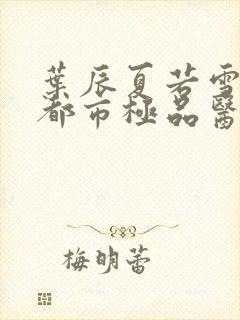 葉辰夏若雪
都市極品醫
梅明蕾